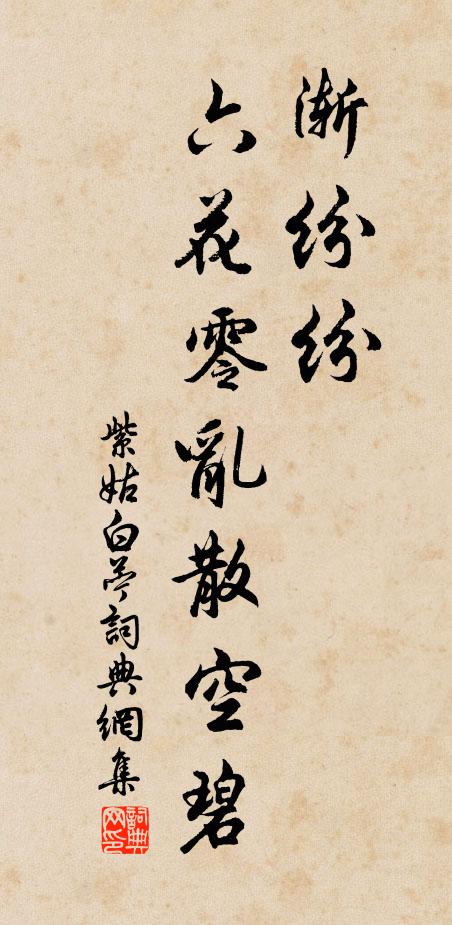 漸紛紛
六花零亂散空碧
紫姑白苧詞典網集
詞典网印